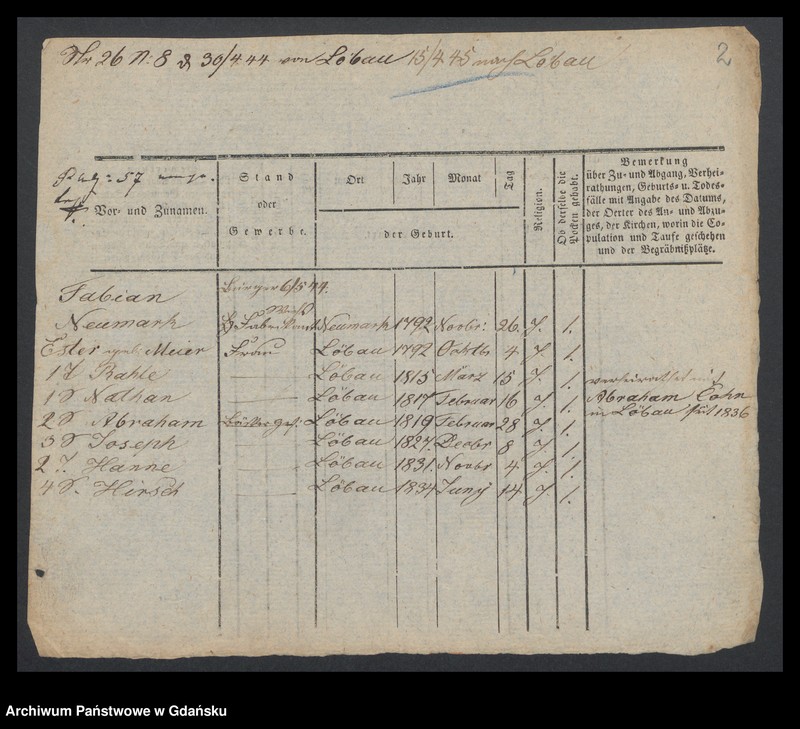 Nr 26 N: 8 d 30/4 44 von Löbau 15/4 45 nach Löbau
2
Pag: 57
Vor- und Zunamen.
Stand
oder
Gewerbe.
Ort
Jahr
Monat
Tag
der Geburt.
Religion.
Ob derselbe die
Pocken gehabt.
Bemerkung
über Zu- und Abgang, Verhei-
rathungen, Geburts- u. Todes-
fälle mit Angabe des Datums,
der Oerter des An- und Abzu-
ges, der Kirchen, worin die Co-
pulation und Taufe geschehen
und der Begräbnißplätze.
Fabian Bürger 6/5 44.
Neumark Fabrikant Neumark 1792 Novbr: 26. J. 1.
Ester Meier Frau Löbau 1792 Octbr 4 J. 1.
1 T Rahle — Löbau 1815 März 15 J. 1. verheirathet mit
1 S Nathan — Löbau 1817 Februar 16 J. 1. Abraham Cohn
2 S Abraham Bäckerges: Löbau 1819 Februar 28 J. 1. in Löbau seit 1836
3 S Joseph — Löbau 1827. Decbr 8 J. 1.
2 T. Hanne — Löbau 1831. Novbr 4 J. 1.
4 S. Hirsch — Löbau 1834 Juny 14 J. 1.
Archiwum Państwowe w Gdańsku